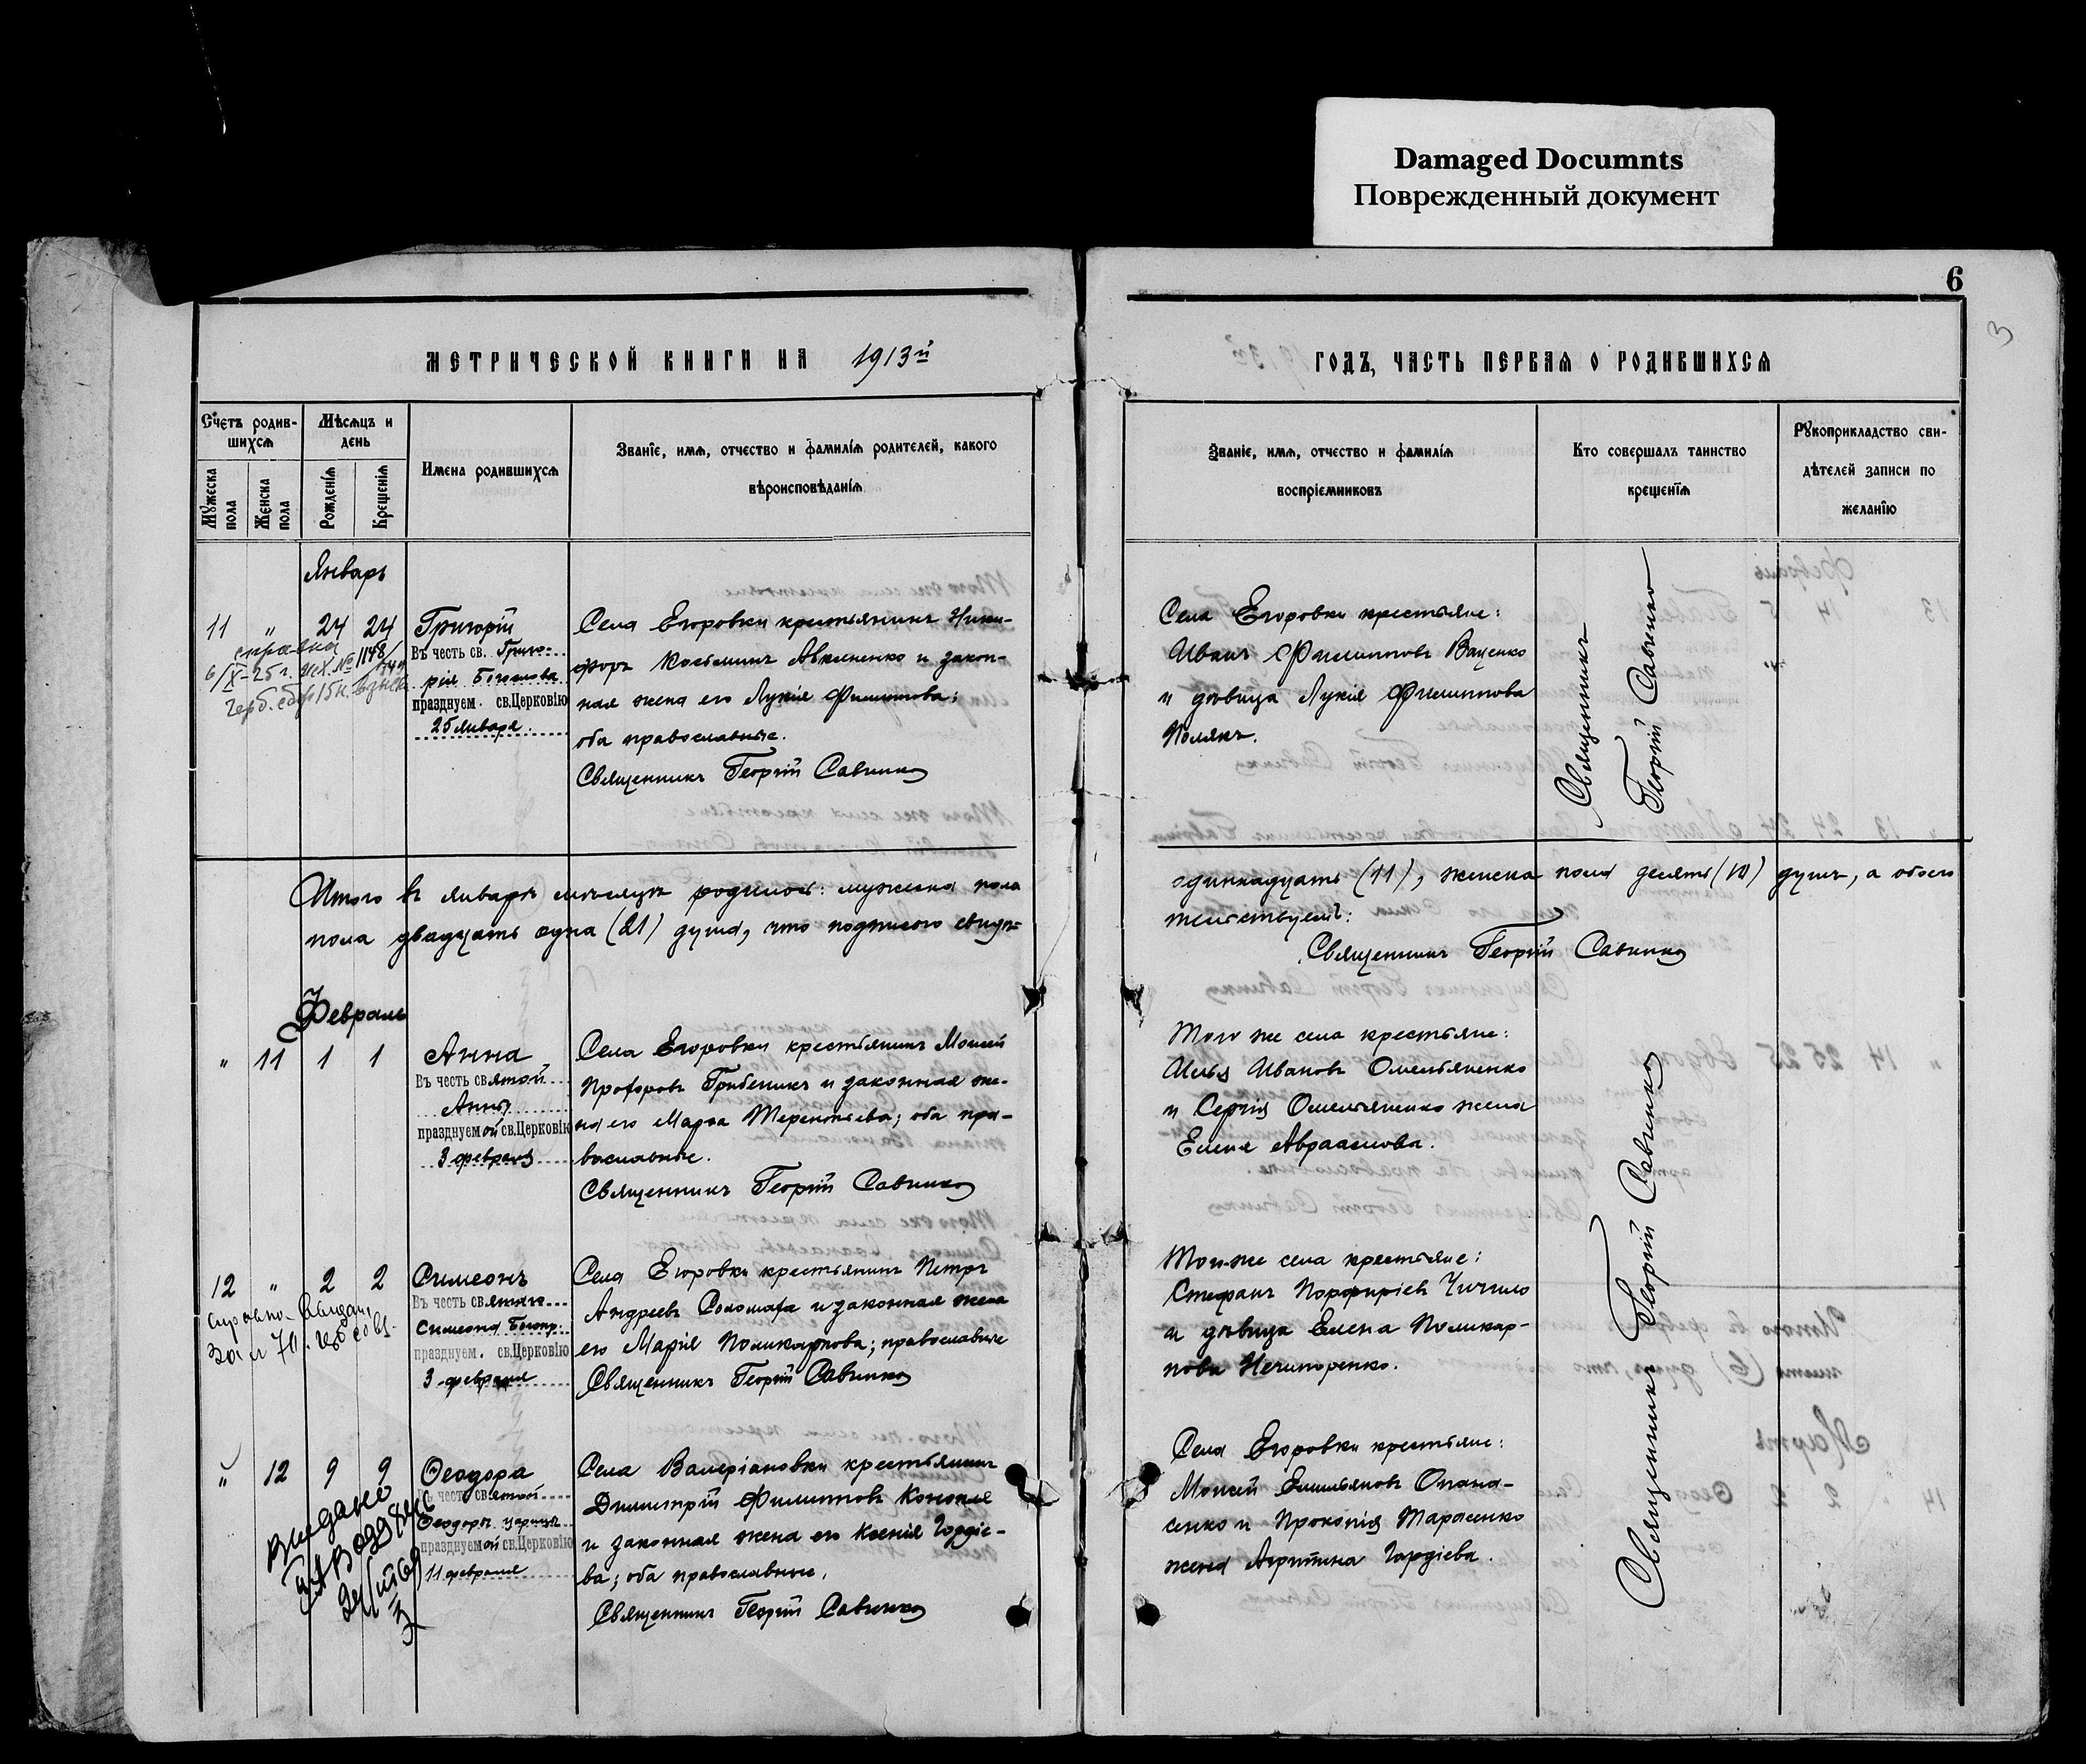 Damaged Documnts
Поврежденный документ
6
3
МЕТРИЧЕСКОЙ КНИГИ НА 1913й
ГОДЪ, ЧАСТЬ ПЕРВАЯ О РОДИВШИХСЯ
Счетъ родив-
шихся
Мѣсяцъ и
день
Мужеска пола
Женска пола
Рожденія
Крещенія
Имена родившихся
Званіе, имя, отчество и фамилія родителей, какого
вѣроисповѣданія
Званіе, имя, отчество и фамилія
воспріемниковъ
Кто совершалъ таинство
крещенія
Рукоприкладство сви-
дѣтелей записи по
желанію
Январь
11 „ 24 24
справка
6/X-25 г. исх. № 1148/
герб. сбор 15 к. взыск
Григорій
Въ честь св. Григо-
рія Богослова
празднуем. св.Церковію
25 января
Села Егоровки крестьянинъ Ники-
форъ Косьминъ Авксененко и закон-
ная жена его Лукія Филиппова;
оба православные.
Священникъ Георгій Савченко
Села Егоровки крестьяне:
Иванъ Филипповъ Ващенко
и дѣвица Лукія Филиппова
Полякъ.
Священникъ
Георгій Савченко
Итого въ январѣ мѣсяцѣ родилось: мужеска пола
одиннадцать (11), женска пола десять (10) душъ, а обоего
пола двадцать одна (21) душа, что подписомъ свидѣ-
тельствуемъ:
Священникъ Георгій Савченко
Февраль
„ 11 1 1
Анна
Въ честь святой
Анны
празднуемой св.Церковію
3 февраля
Села Егоровки крестьянинъ Моисей
Прохоровъ Гребеникъ и законная же-
на его Марѳа Терентьева; оба пра-
вославные.
Священникъ Георгій Савченко
Того же села крестьяне:
Илья Ивановъ Омельяненко
и Сергія Омельяненко жена
Елена Авраамова.
12 „ 2 2
справка выдана
Симеонъ
Въ честь святаго
Симеона Богопр.
празднуем. св.Церковію
3 февраля
Села Егоровки крестьянинъ Петръ
Андреевъ Соломаха и законная жена
его Марія Поликарпова; православные
Священникъ Георгій Савченко
Того-же села крестьяне:
Стефанъ Порфиріевъ Чичило
и дѣвица Елена Поликар-
пова Нечипоренко.
„ 12 9 9
выдано
Ѳеодора
Въ честь святой
Ѳеодоры царицы
празднуемой св.Церковію
11 февраля
Села Валеріановки крестьянинъ
Димитрій Филипповъ Конопля
и законная жена его Ксенія Гордіе-
ва; оба православные.
Священникъ Георгій Савченко
Села Егоровки крестьяне:
Моисей Емильяновъ Опана-
сенко и Прокопія Тарасенко
жена Агрипина Гордіева.
Священникъ Георгій Савченко